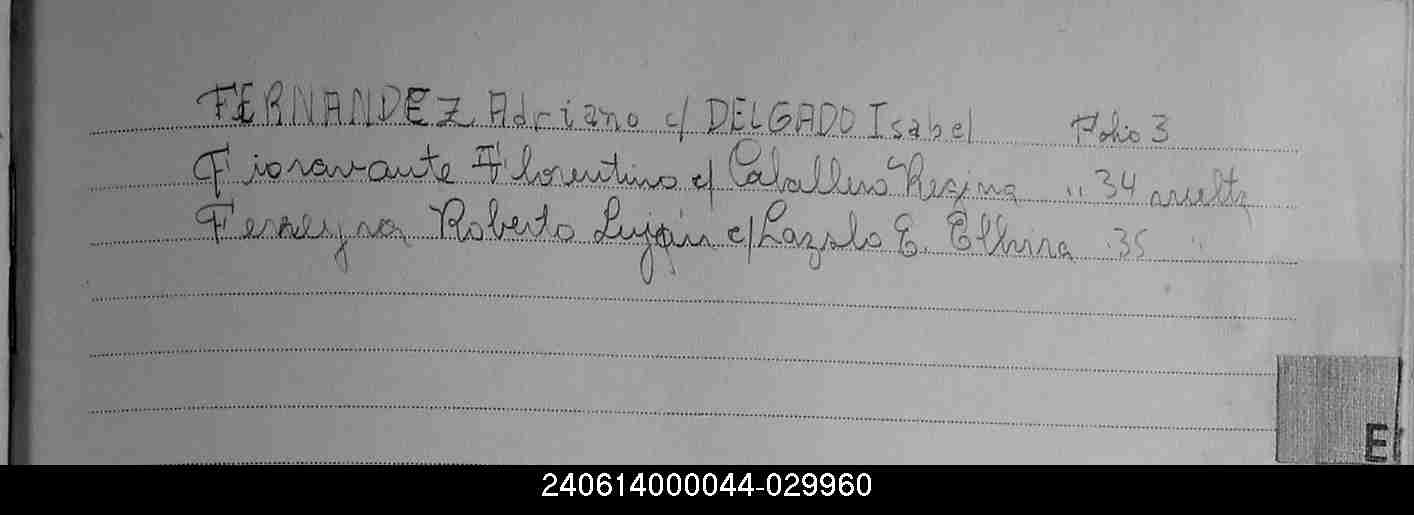 FERNANDEZ Adriano c/ DELGADO Isabel Folio 3
Fioravante Florentino c/ Caballero Regina " 34 vuelta
Ferreyra Roberto Luján c/ Lazalo E. Elvira 35 "
E
240614000044-029960